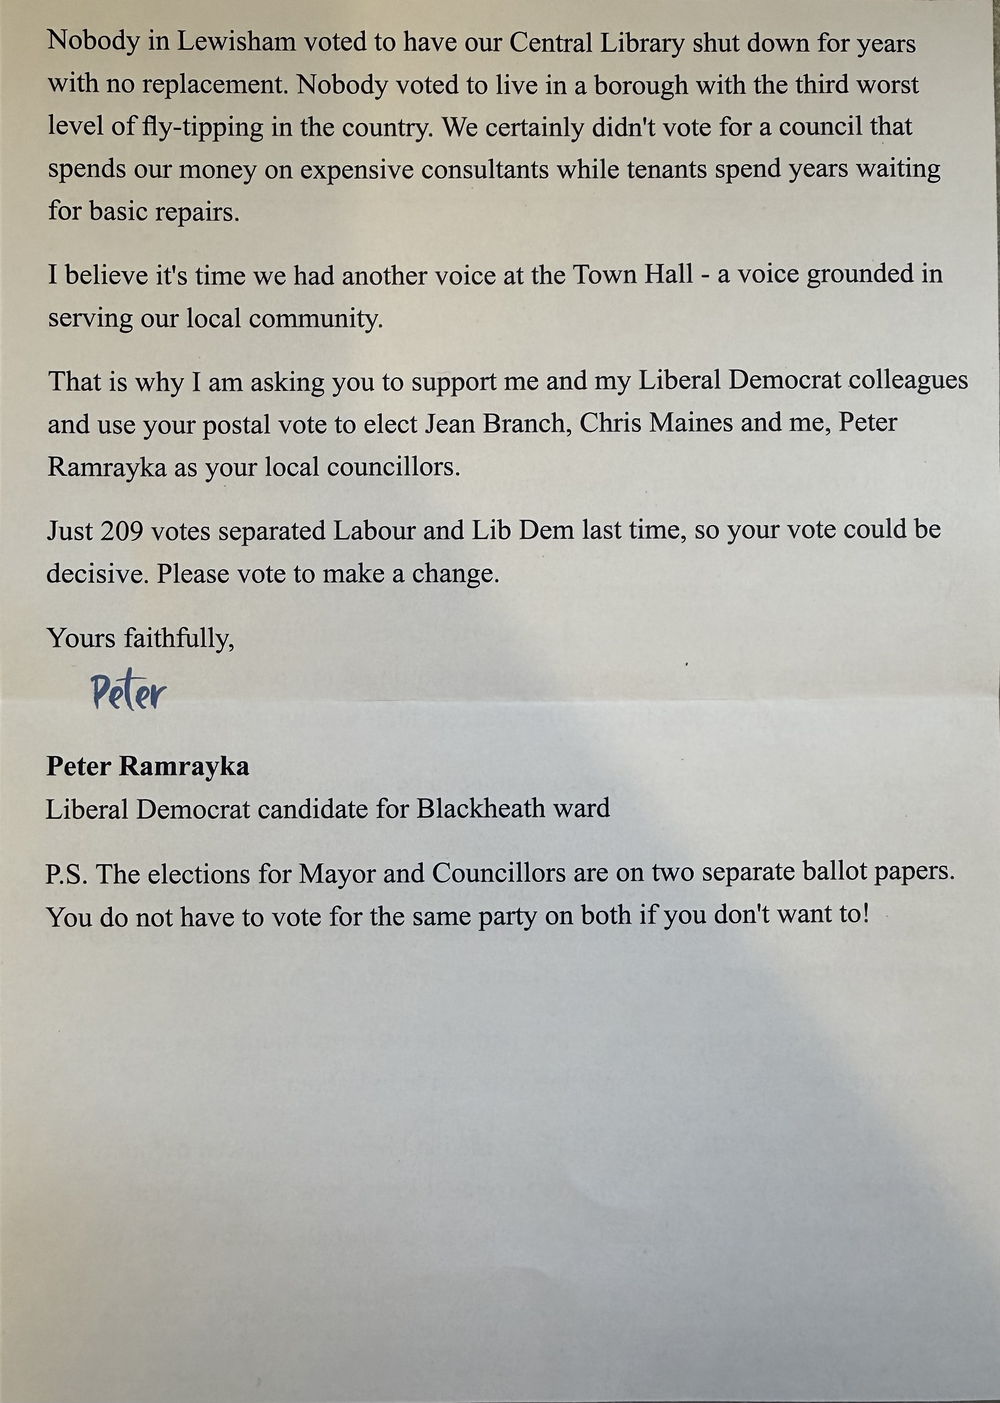 Nobody in Lewisham voted to have our Central Library shut down for years
with no replacement. Nobody voted to live in a borough with the third worst
level of fly-tipping in the country. We certainly didn't vote for a council that
spends our money on expensive consultants while tenants spend years waiting
for basic repairs.
I believe it's time we had another voice at the Town Hall - a voice grounded in
serving our local community.
That is why I am asking you to support me and my Liberal Democrat colleagues
and use your postal vote to elect Jean Branch, Chris Maines and me, Peter
Ramrayka as your local councillors.
Just 209 votes separated Labour and Lib Dem last time, so your vote could be
decisive. Please vote to make a change.
Yours faithfully,
Peter
Peter Ramrayka
Liberal Democrat candidate for Blackheath ward
P.S. The elections for Mayor and Councillors are on two separate ballot papers.
You do not have to vote for the same party on both if you don't want to!